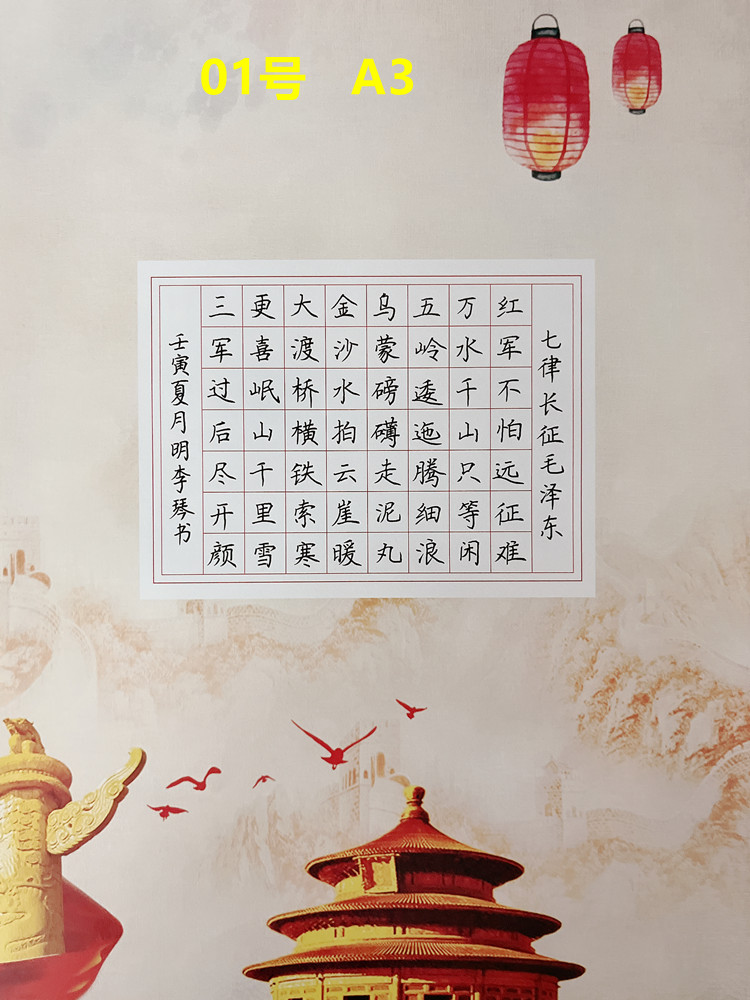 01号 A3
七律长征毛泽东
红军不怕远征难
万水千山只等闲
五岭逶迤腾细浪
乌蒙磅礴走泥丸
金沙水拍云崖暖
大渡桥横铁索寒
更喜岷山千里雪
三军过后尽开颜
壬寅夏月明李琴书